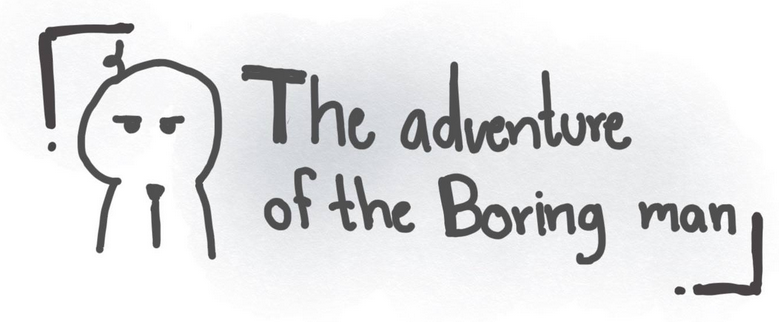 The adventure
of the Boring man